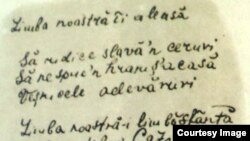 Limba noastră-i aleasă
Să ridice slavă'n ceruri
Să ne spue'n hram și'acasă
Veșnicele adevăruri
Limba noastră-i limbă sfântă
Courtesy Image